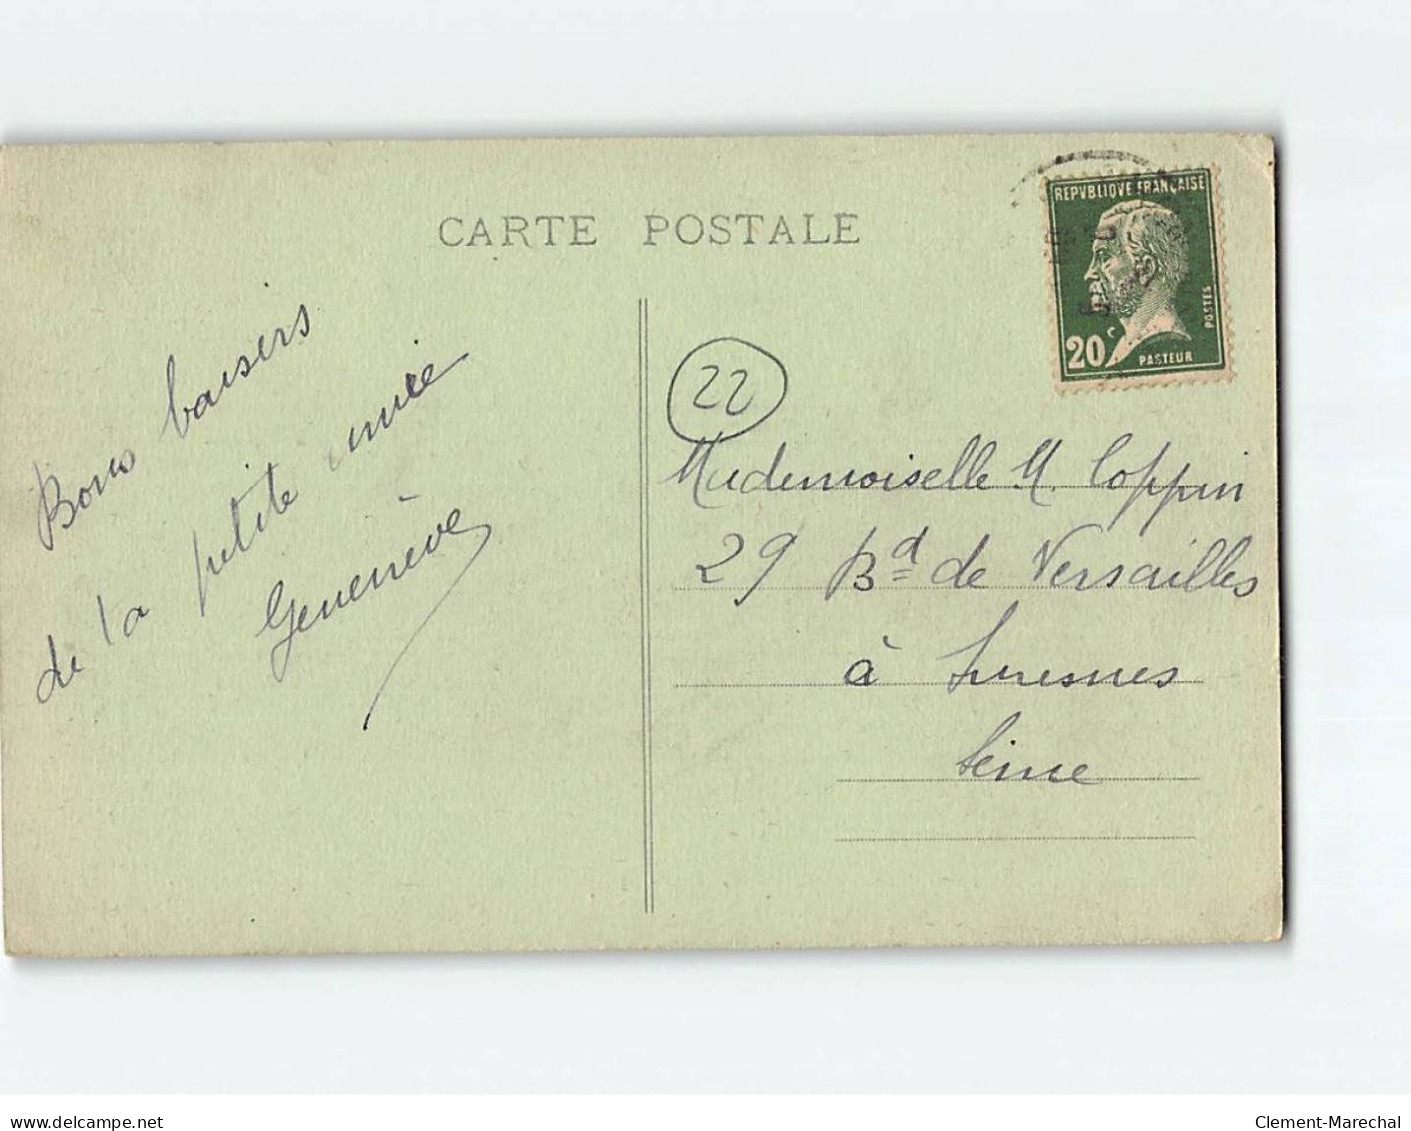 CARTE POSTALE
REPVBLIQVE FRANÇAISE
POSTES
20c
PASTEUR
22
Bons baisers
de la petite amie
Geneviève
Mademoiselle M. Coppin
29 Bd de Versailles
à Suresnes
Seine
www.delcampe.net
Clement-Marechal